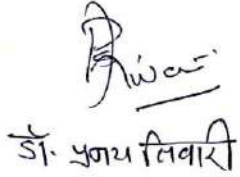 डॉ. प्रणय तिवारी